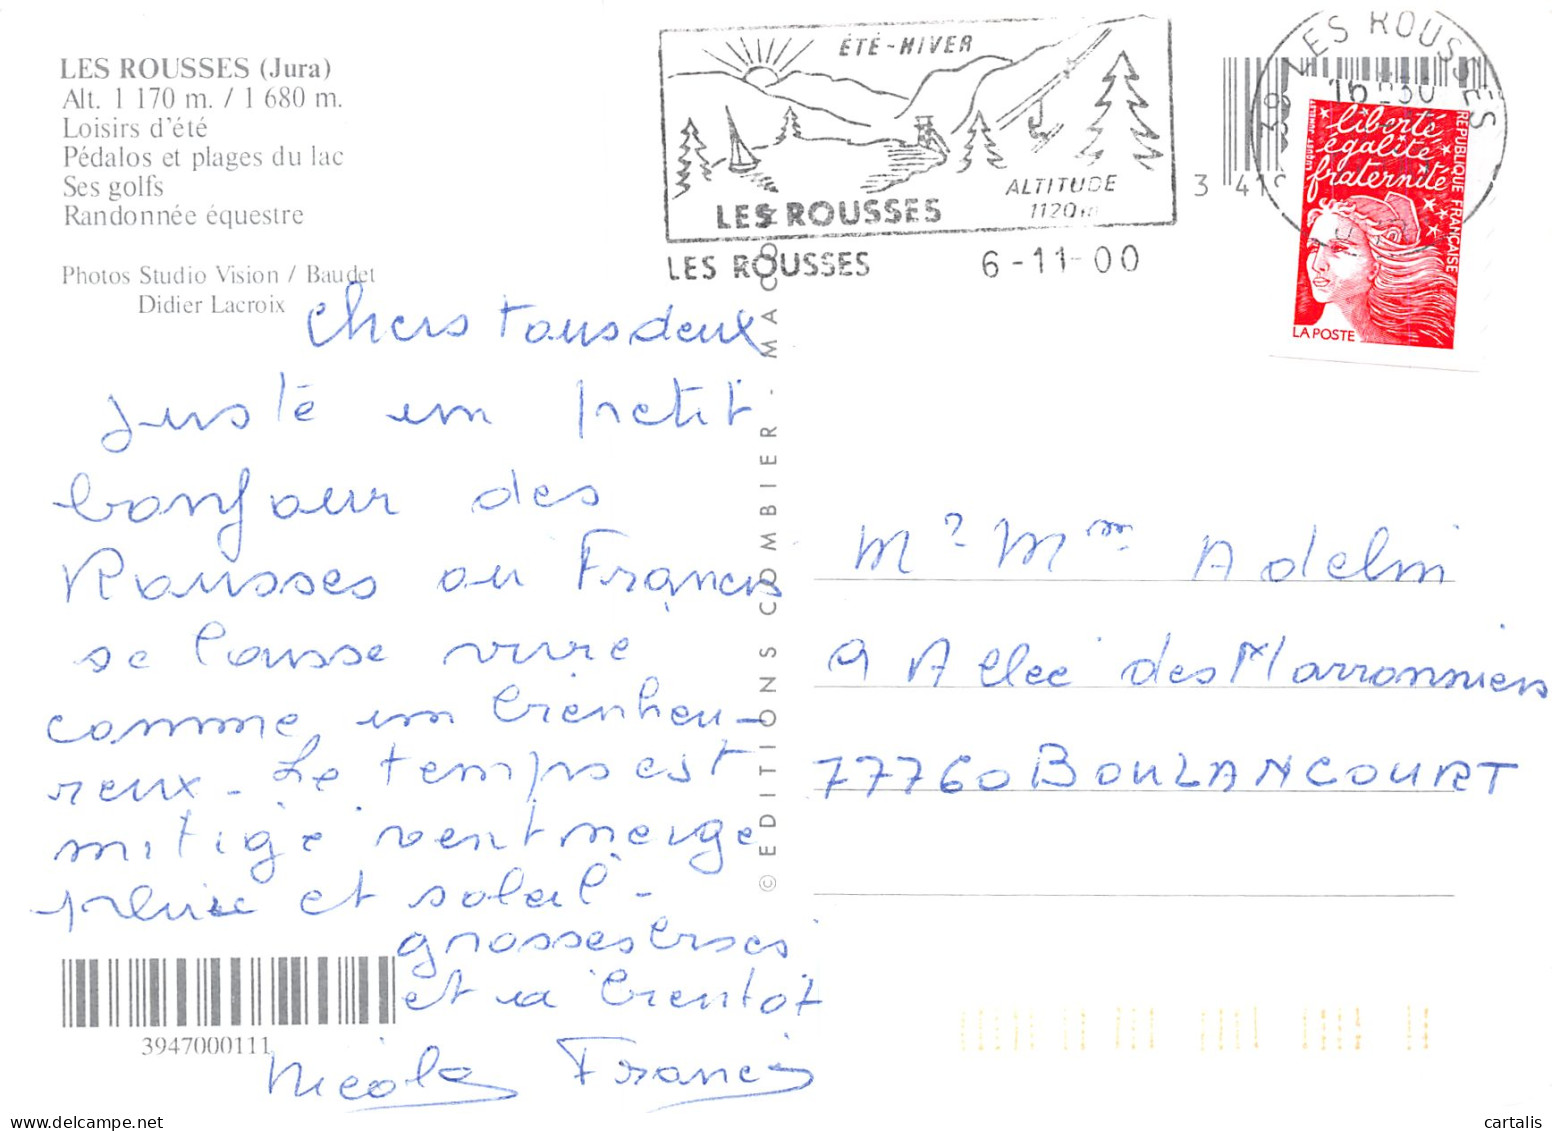 LES ROUSSES (Jura)
Alt. 1 170 m. / 1 680 m.
Loisirs d'été
Pédalos et plages du lac
Ses golfs
Randonnée équestre
Photos Studio Vision / Baudet
Didier Lacroix
ÉTÉ-HIVER
ALTITUDE
1120m
LES ROUSSES
LES ROUSSES
6-11-00
39 LES ROUSSES
16 30
3 419
LUQUET JUMELET
liberté
égalité
fraternité
RÉPUBLIQUE FRANÇAISE
LA POSTE
Chers tous deux
juste un petit
bonjour des
Rousses ou Francis
se laisse vivre
comme un bienheu-
reux - Le temps est
mitigé vent neige
pluie et soleil -
grosses bises
et a bientot
Nicole Francis
© EDITIONS COMBIER - MACON
Mr Mme Adelin
9 Allée des Marronniers
77760 BOULANCOURT
3947000111
delcampe.net
cartalis